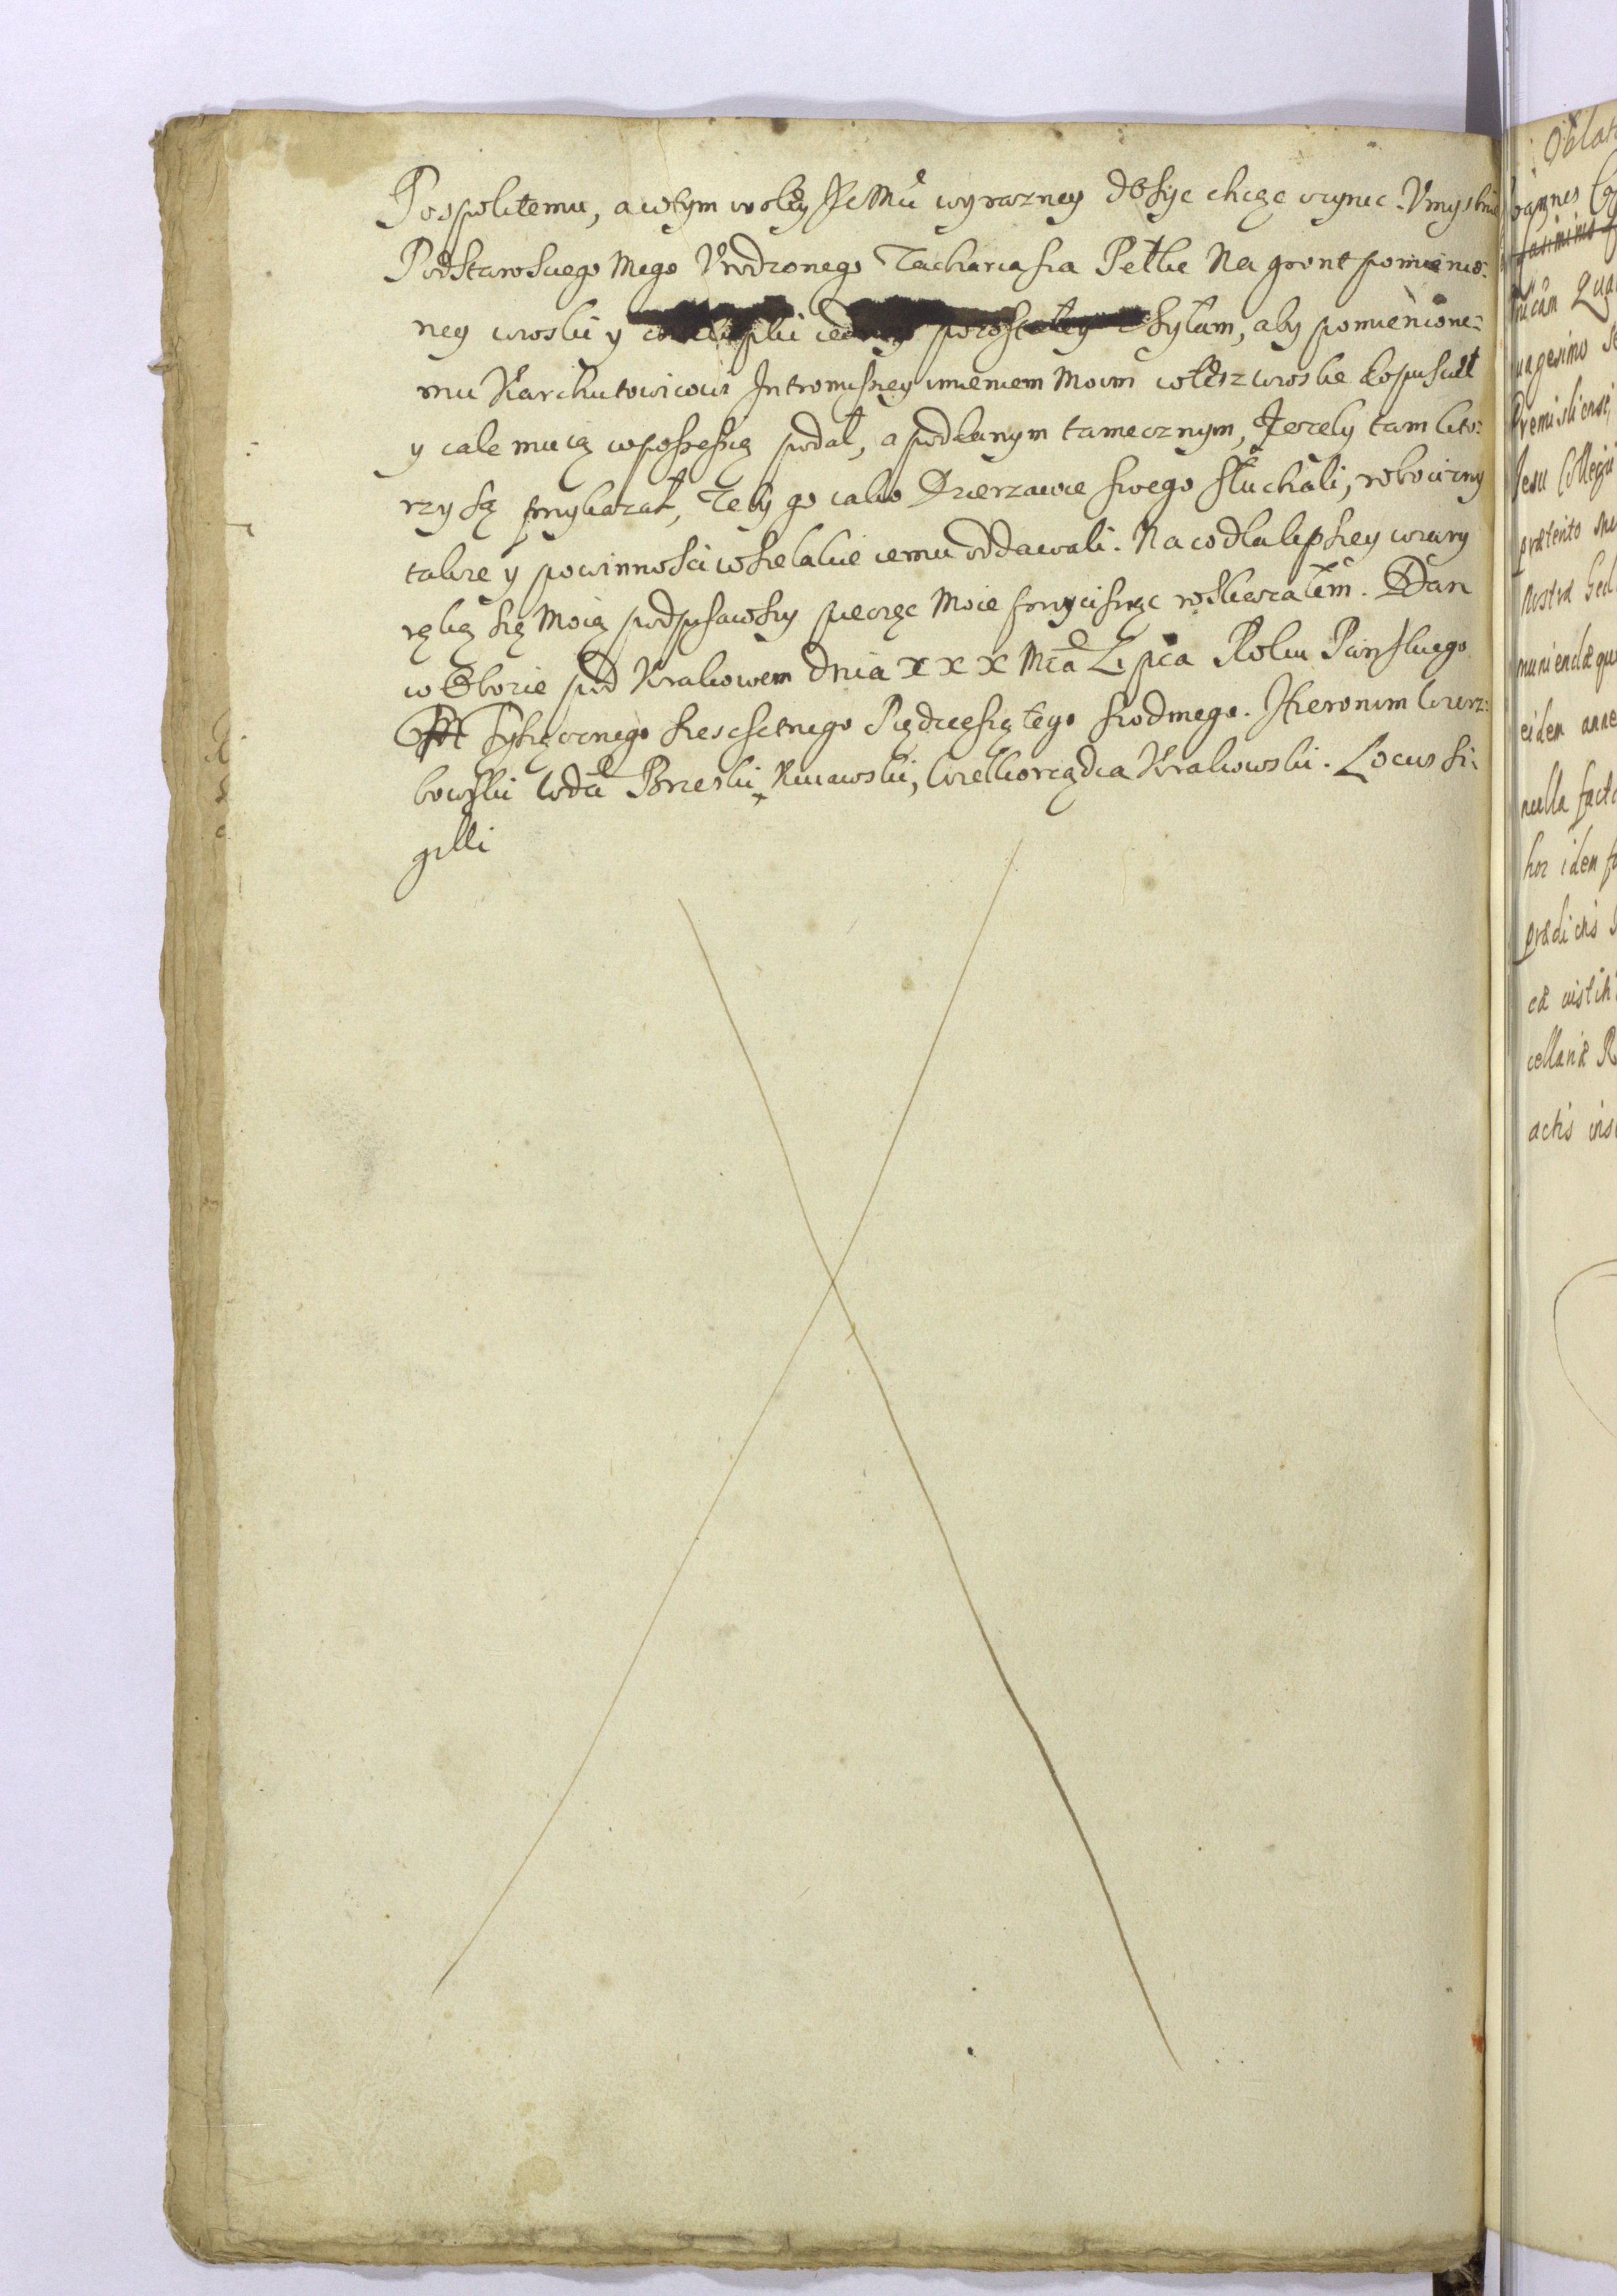 Pospolitemu, a wtym woley JKMci wyrazney dosyc chcąc ucynic. Vmyslnie
Podstarosciego Mego Vrodzonego Zachariasza Pełke Na gront pomienio:
ney wioski y pozostałey zsyłam, aby pomienione:
mu Karchutowicowi Intromissyey imieniem Moim wtesz wioske dopuscił
y cale mu ią wposesyą podał, a poddanym tamecznym, Jezely tam kto:
rzy są przykazał, Zeby go iako Dzierzawce swego słuchali, robocizny
takze y powinnosci wszelakie iemu oddawali. Na co dla lepszey wiary
ręką się Moią podpisawszy pieczęc Moie przycisnąc roskazałem. Dan
w Oborze pod Krakowem dnia xxx Mca Lipca Roku Panskiego
Tysiącznego szescsetnego Pięćdziesiątego siodmego. Hieronim Wierz:
bowski Wda Brzeski Kuiawski, Wielkorządca Krakowski. Locus Si:
gilli
Oblat

nicam Qua
uagesimo Se
Premisliensi
Jesu Collegii
prætento
nostra
muniendæ qu
eidem
nulla facta
hoc idem
prædictis
ea
cellariæ R
actis ins